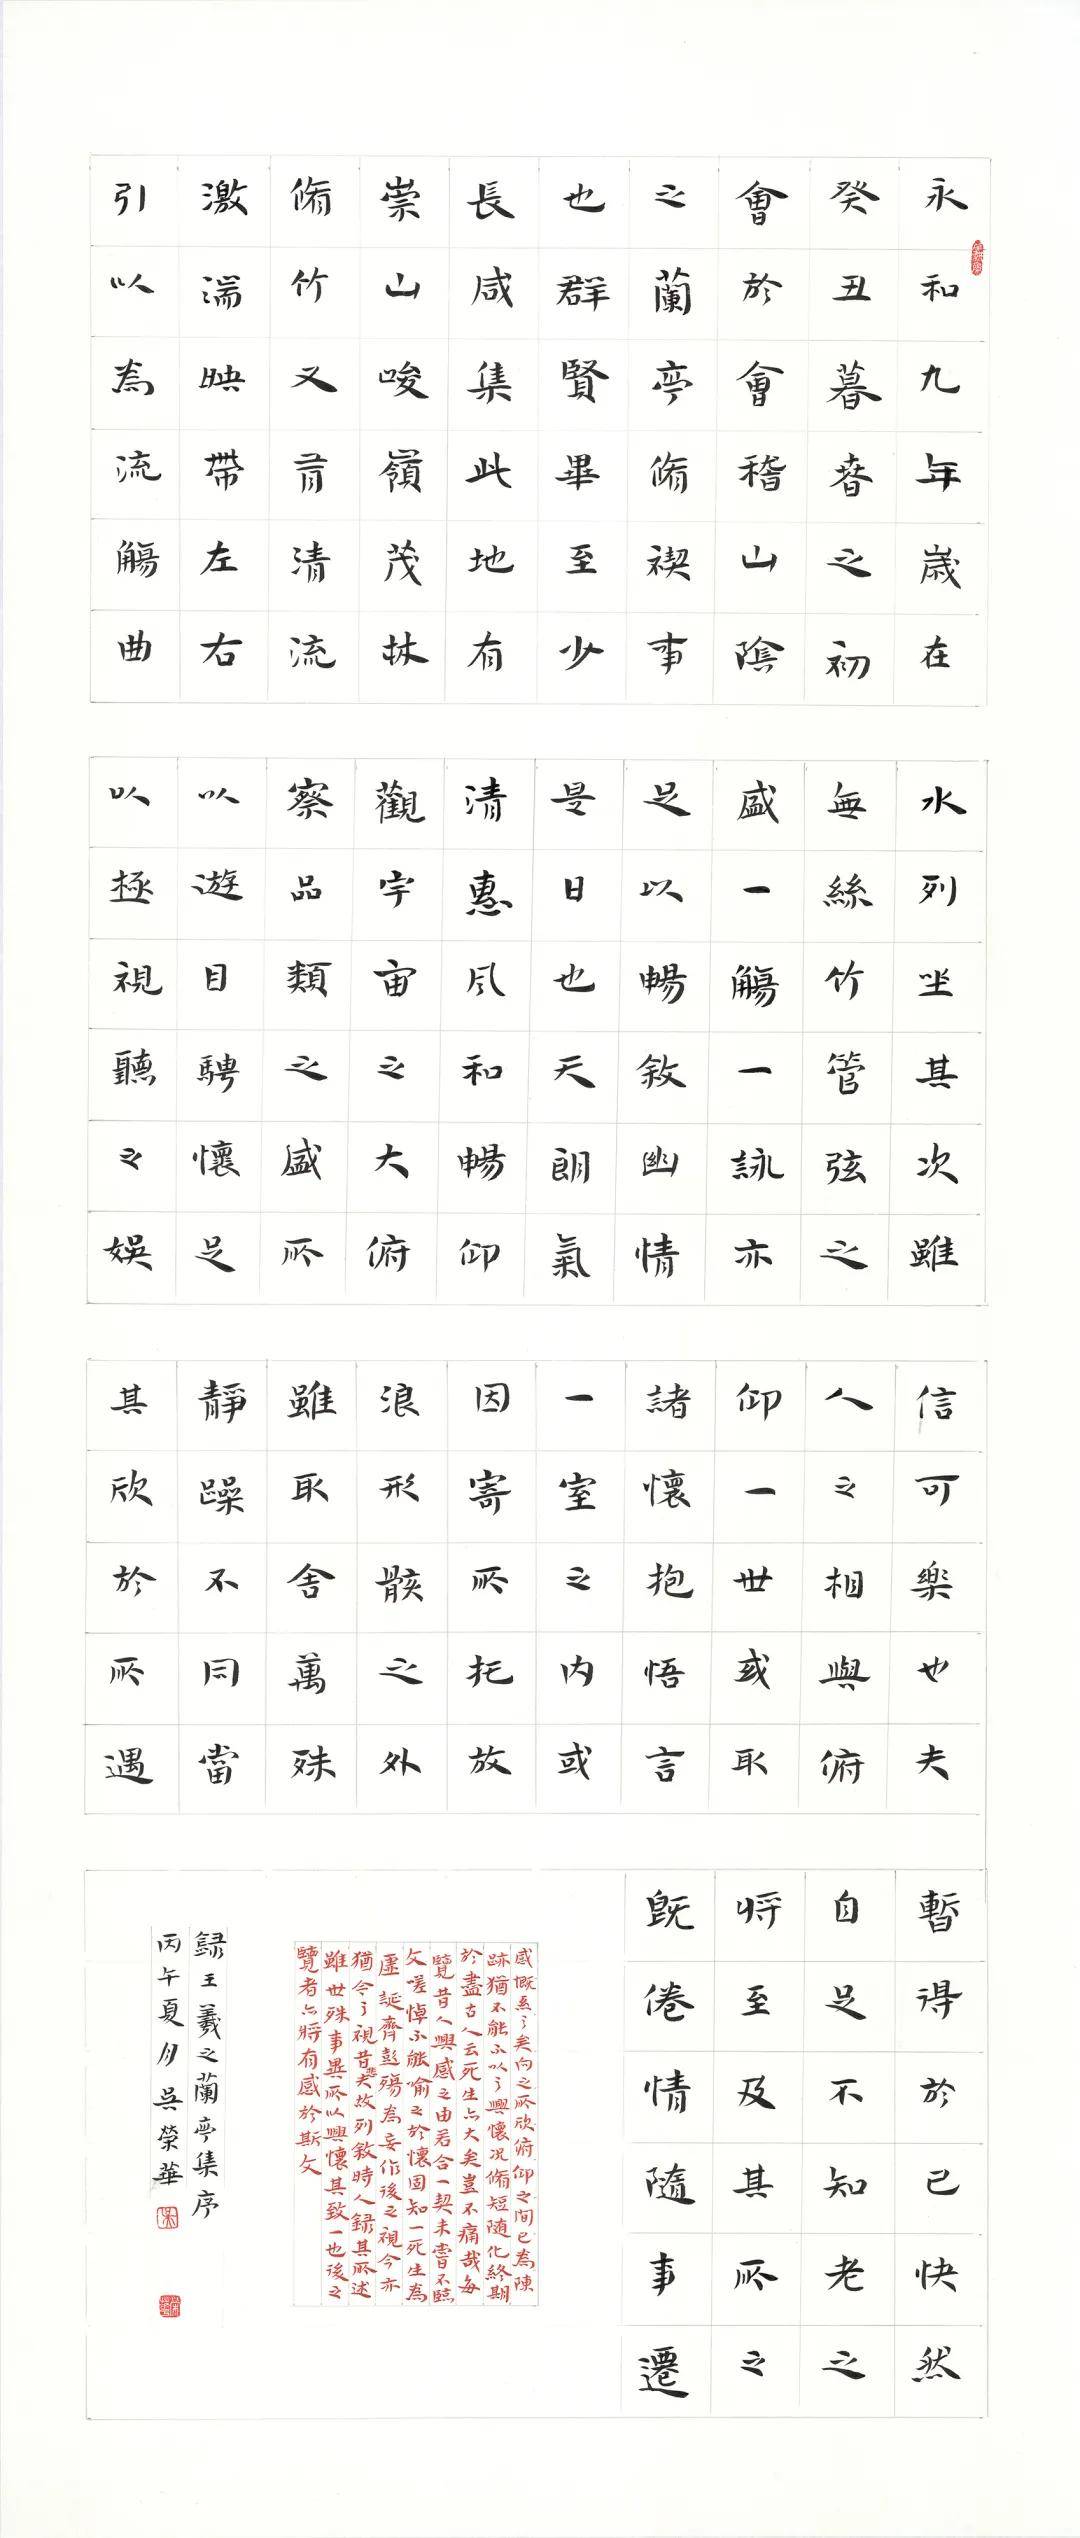 永和九年歲在
癸丑暮春之初
會於會稽山陰
之蘭亭脩禊事
也群賢畢至少
長咸集此地有
崇山峻嶺茂林
脩竹又有清流
激湍映帶左右
引以為流觴曲
水列坐其次雖
無絲竹管弦之
盛一觴一詠亦
足以暢敘幽情
是日也天朗氣
清惠風和暢仰
觀宇宙之大俯
察品類之盛所
以遊目騁懷足
以極視聽之娛
信可樂也夫
人之相與俯
仰一世或取
諸懷抱悟言
一室之內或
因寄所托放
浪形骸之外
雖取舍萬殊
靜躁不同當
其欣於所遇
暫得於己快然
自足不知老之
將至及其所之
既倦情隨事遷
感慨係之矣向之所欣俯仰之間已為陳
跡猶不能不以之興懷況脩短隨化終期
於盡古人云死生亦大矣豈不痛哉每
覽昔人興感之由若合一契未嘗不臨
文嗟悼不能喻之於懷固知一死生為
虛誕齊彭殤為妄作後之視今亦
猶今之視昔悲夫故列敘時人錄其所述
雖世殊事異所以興懷其致一也後之
覽者亦將有感於斯文
錄王羲之蘭亭集序
丙午夏月吳榮華